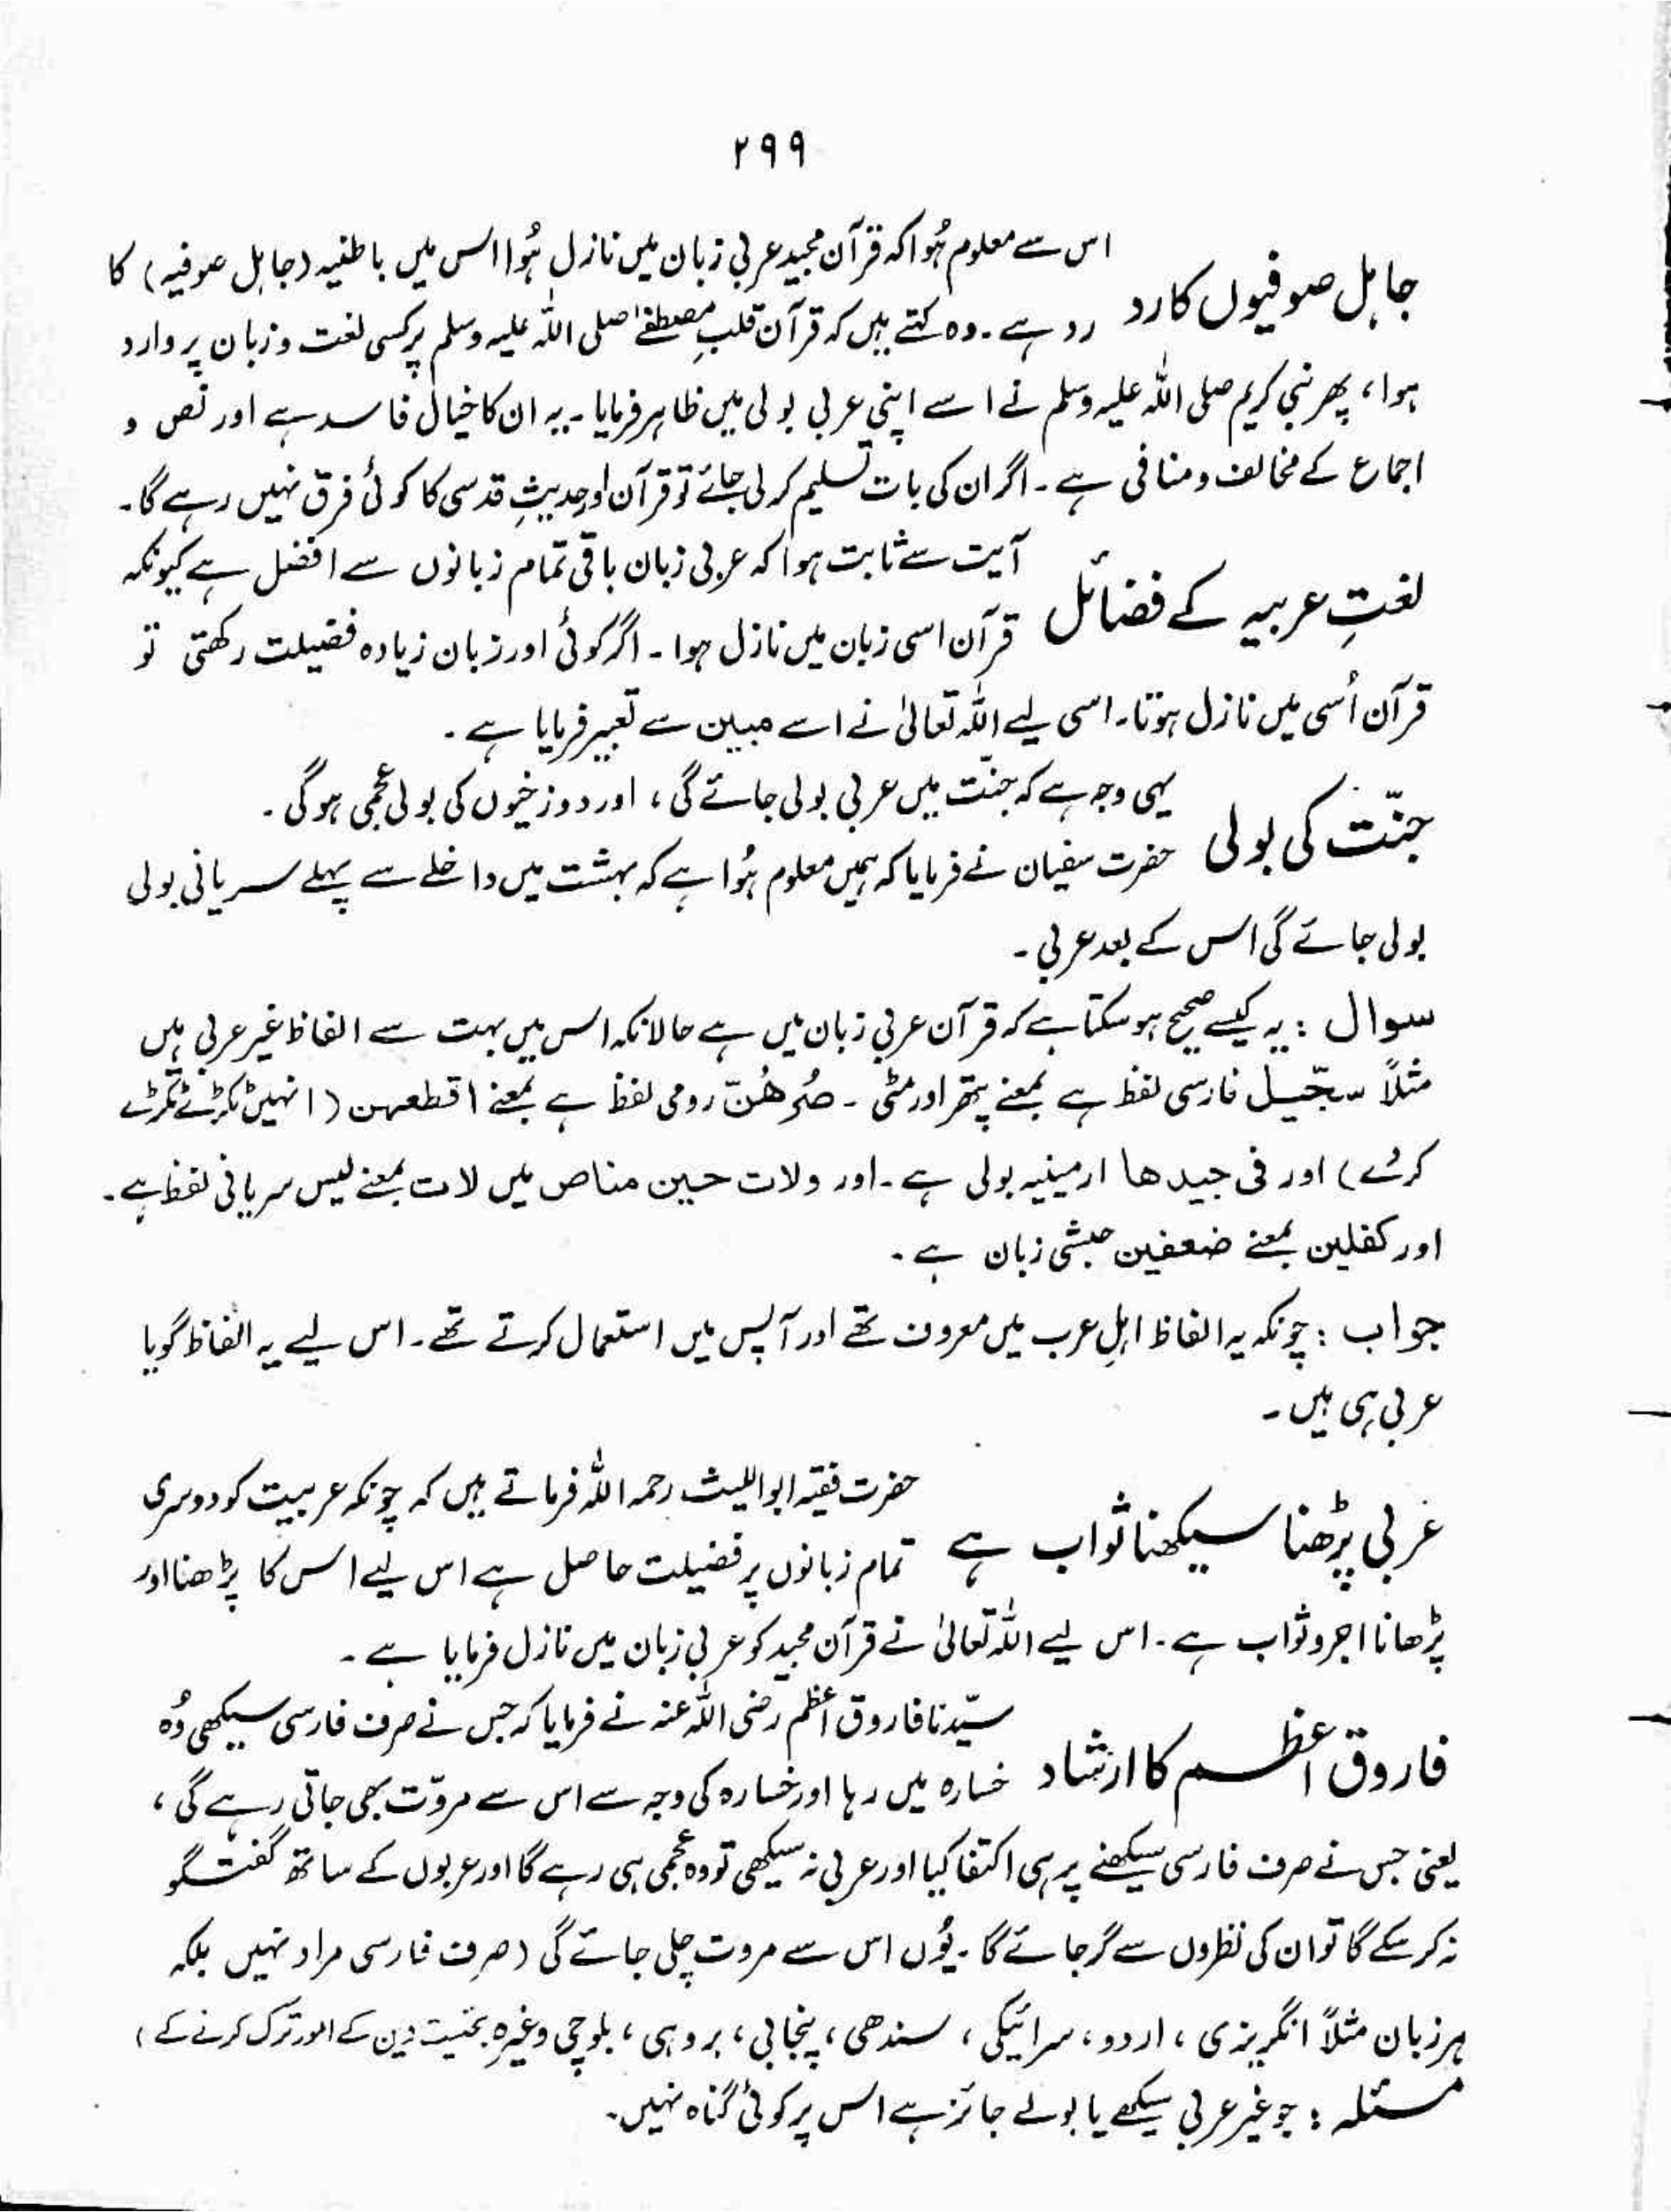 ۲۹۹
اس سے معلوم ہُوا کہ قرآن مجید عربی زبان میں نازل ہُوا اس میں باطنیہ (جاہل صوفیہ) کا
جاہل صوفیوں کا رد
رد ہے ۔ وہ کہتے ہیں کہ قرآن قلبِ مصطفےٰ صلی اللہ علیہ وسلم پر کسی لغت و زبان پر وارد
ہوا، پھر نبی کریم صلی اللہ علیہ وسلم نے اسے اپنی عربی بولی میں ظاہر فرمایا ۔ یہ ان کا خیال فاسد ہے اور نص و
اجماع کے مخالف و منافی ہے ۔ اگر ان کی بات تسلیم کر لی جائے تو قرآن اور حدیثِ قدسی کا کوئی فرق نہیں رہے گا ۔
آیت سے ثابت ہوا کہ عربی زبان باقی تمام زبانوں سے افضل ہے کیونکہ
لغتِ عربیہ کے فضائل
قرآن اسی زبان میں نازل ہوا ۔ اگر کوئی اور زبان زیادہ فضیلت رکھتی تو
قرآن اُسی میں نازل ہوتا ۔ اسی لیے اللہ تعالیٰ نے اسے مبین سے تعبیر فرمایا ہے ۔
یہی وجہ ہے کہ جنّت میں عربی بولی جائے گی، اور دوزخیوں کی بولی عجمی ہوگی ۔
جنّت کی بولی
حضرت سفیان نے فرمایا کہ ہمیں معلوم ہُوا ہے کہ بہشت میں داخلے سے پہلے سریانی بولی
بولی جائے گی اس کے بعد عربی ۔
سوال : یہ کیسے صحیح ہو سکتا ہے کہ قرآن عربی زبان میں ہے حالانکہ اس میں بہت سے الفاظ غیر عربی ہیں
مثلاً سجّیل فارسی لفظ ہے بمعنے پتھر اور مٹی ۔ صُرْهُنَّ رومی لفظ ہے بمعنے اقطعهن (انہیں ٹکڑے ٹکڑے
کر دے) اور فی جیدھا ارمینیہ بولی ہے ۔ اور ولات حین مناص میں لات بمعنے لیس سریانی لفظ ہے ۔
اور کفلین بمعنے ضعفین حبشی زبان ہے ۔
جواب : چونکہ یہ الفاظ اہلِ عرب میں معروف تھے اور آپس میں استعمال کرتے تھے ۔ اس لیے یہ الفاظ گویا
عربی ہی ہیں ۔
حضرت فقیہ ابواللیث رحمہ اللہ فرماتے ہیں کہ چونکہ عربیت کو دوسری
عربی پڑھنا سیکھنا ثواب ہے
تمام زبانوں پر فضیلت حاصل ہے اس لیے اس کا پڑھنا اور
پڑھانا اجر و ثواب ہے ۔ اس لیے اللہ تعالیٰ نے قرآن مجید کو عربی زبان میں نازل فرمایا ہے ۔
سیّدنا فاروق اعظم رضی اللہ عنہ نے فرمایا کہ جس نے صرف فارسی سیکھی وُہ
فاروق اعظم کا ارشاد
خسارہ میں رہا اور خسارہ کی وجہ سے اس سے مروّت بھی جاتی رہے گی،
یعنی جس نے صرف فارسی سیکھنے پر ہی اکتفا کیا اور عربی نہ سیکھی تو وہ عجمی ہی رہے گا اور عربوں کے ساتھ گفتگو
نہ کر سکے گا تو ان کی نظروں سے گر جائے گا ۔ یُوں اس سے مروت چلی جائے گی (صرف فارسی مراد نہیں بلکہ
ہر زبان مثلاً انگریزی، اردو، سرائیکی، سندھی، پنجابی، بروہی، بلوچی وغیرہ بحیثیت دین کے امور ترک کرنے کے)
مسئلہ : جو غیر عربی سیکھے یا بولے جائز ہے اس پر کوئی گناہ نہیں ۔